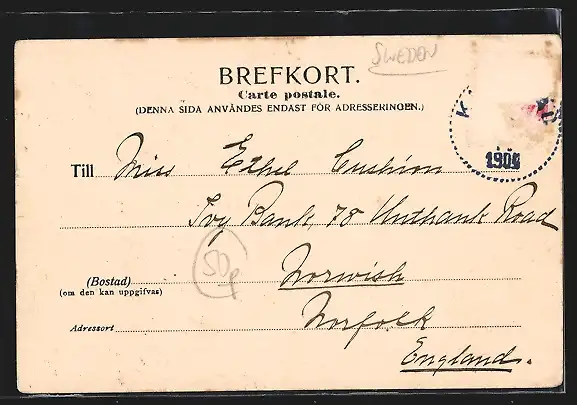 SWEDEN
BREFKORT.
Carte postale.
(DENNA SIDA ANVÄNDES ENDAST FÖR ADRESSERINGEN.)
K
1904
Till Miss Ethel Cushion
Ivy Bank, 78 Unthank Road
50p
(Bostad) Norwich
(om den kan uppgifvas)
Norfolk
Adressort
England.